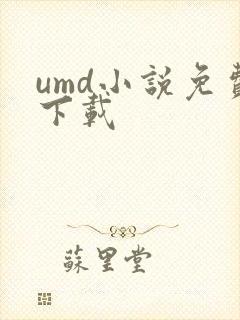 umd小説免費
下載
蘇里堂